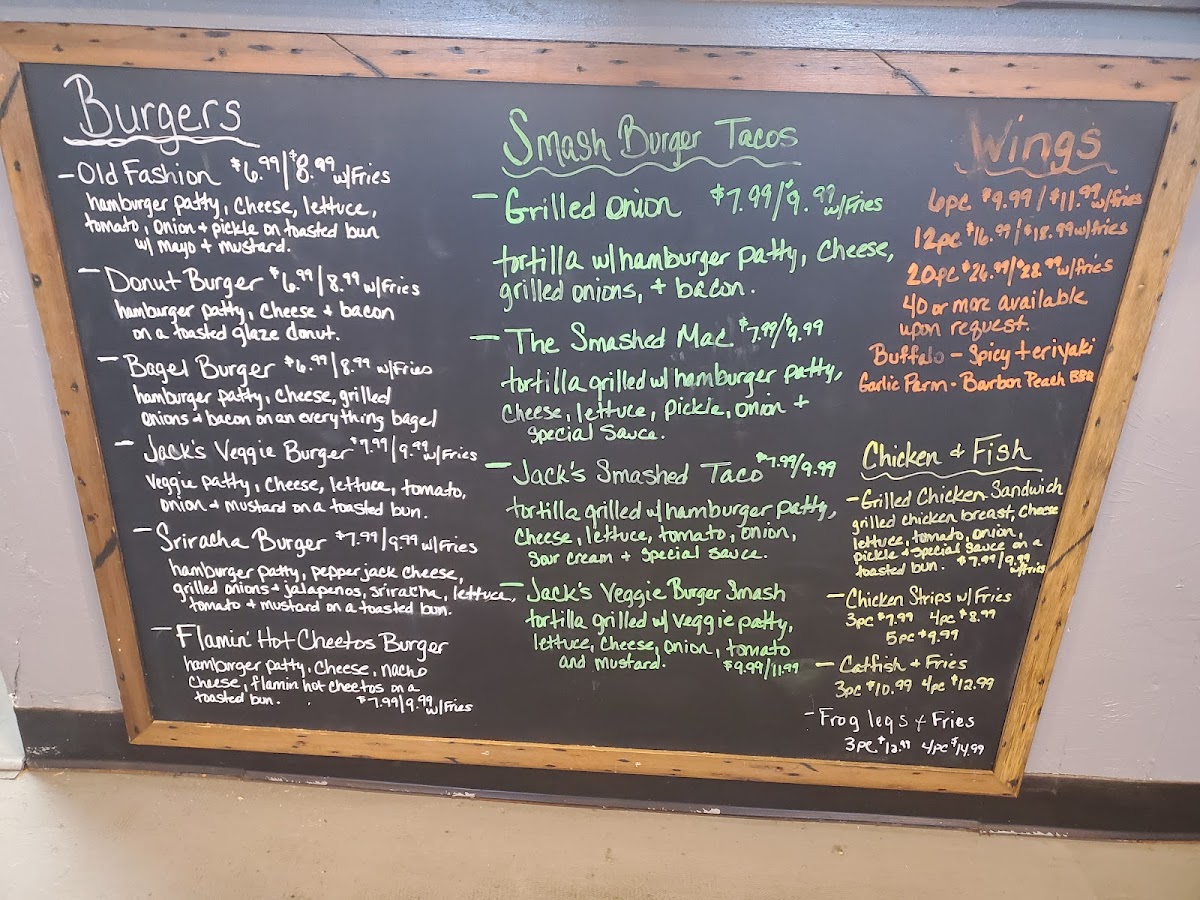 Burgers
- Old Fashion $6.99/$8.99 w/Fries
hamburger patty, cheese, lettuce,
tomato, onion + pickle on toasted bun
w/ mayo + mustard.
- Donut Burger $6.99/8.99 w/Fries
hamburger patty, cheese + bacon
on a toasted glaze donut.
- Bagel Burger $6.99/8.99 w/Fries
hamburger patty, cheese, grilled
onions + bacon on an everything bagel
- Jack's Veggie Burger $7.99/9.99 w/Fries
veggie patty, cheese, lettuce, tomato,
onion + mustard on a toasted bun.
- Sriracha Burger $7.99/9.99 w/Fries
hamburger patty, pepper jack cheese,
grilled onions + jalapenos, sriracha, lettuce,
tomato + mustard on a toasted bun.
- Flamin' Hot Cheetos Burger
hamburger patty, cheese, nacho
cheese, flamin hot cheetos on a
toasted bun. $7.99/9.99 w/Fries
Smash Burger Tacos
- Grilled onion $7.99/$9.99 w/Fries
tortilla w/hamburger patty, cheese,
grilled onions, + bacon.
- The Smashed Mac $7.99/$9.99
tortilla grilled w/ hamburger patty,
cheese, lettuce, pickle, onion +
special sauce.
- Jack's Smashed Taco $7.99/9.99
tortilla grilled w/ hamburger patty,
cheese, lettuce, tomato, onion,
sour cream + special sauce.
- Jack's Veggie Burger Smash
tortilla grilled w/ veggie patty,
lettuce, cheese, onion, tomato
and mustard. $9.99/11.99
Wings
6pc $9.99/$11.99 w/fries
12pc $16.99/$18.99 w/fries
20pc $26.99/$28.99 w/fries
40 or more available
upon request.
Buffalo - Spicy teriyaki
Garlic Parm - Barbon Peach BBQ
Chicken + Fish
- Grilled Chicken Sandwich
grilled chicken breast, cheese
lettuce, tomato, onion,
pickle + special sauce on a
toasted bun. $7.99/9.99
w/Fries
- Chicken Strips w/ Fries
3pc $7.99 4pc $8.99
5pc $9.99
- Catfish + Fries
3pc $10.99 4pc $12.99
- Frog legs + Fries
3pc 4pc $14.99